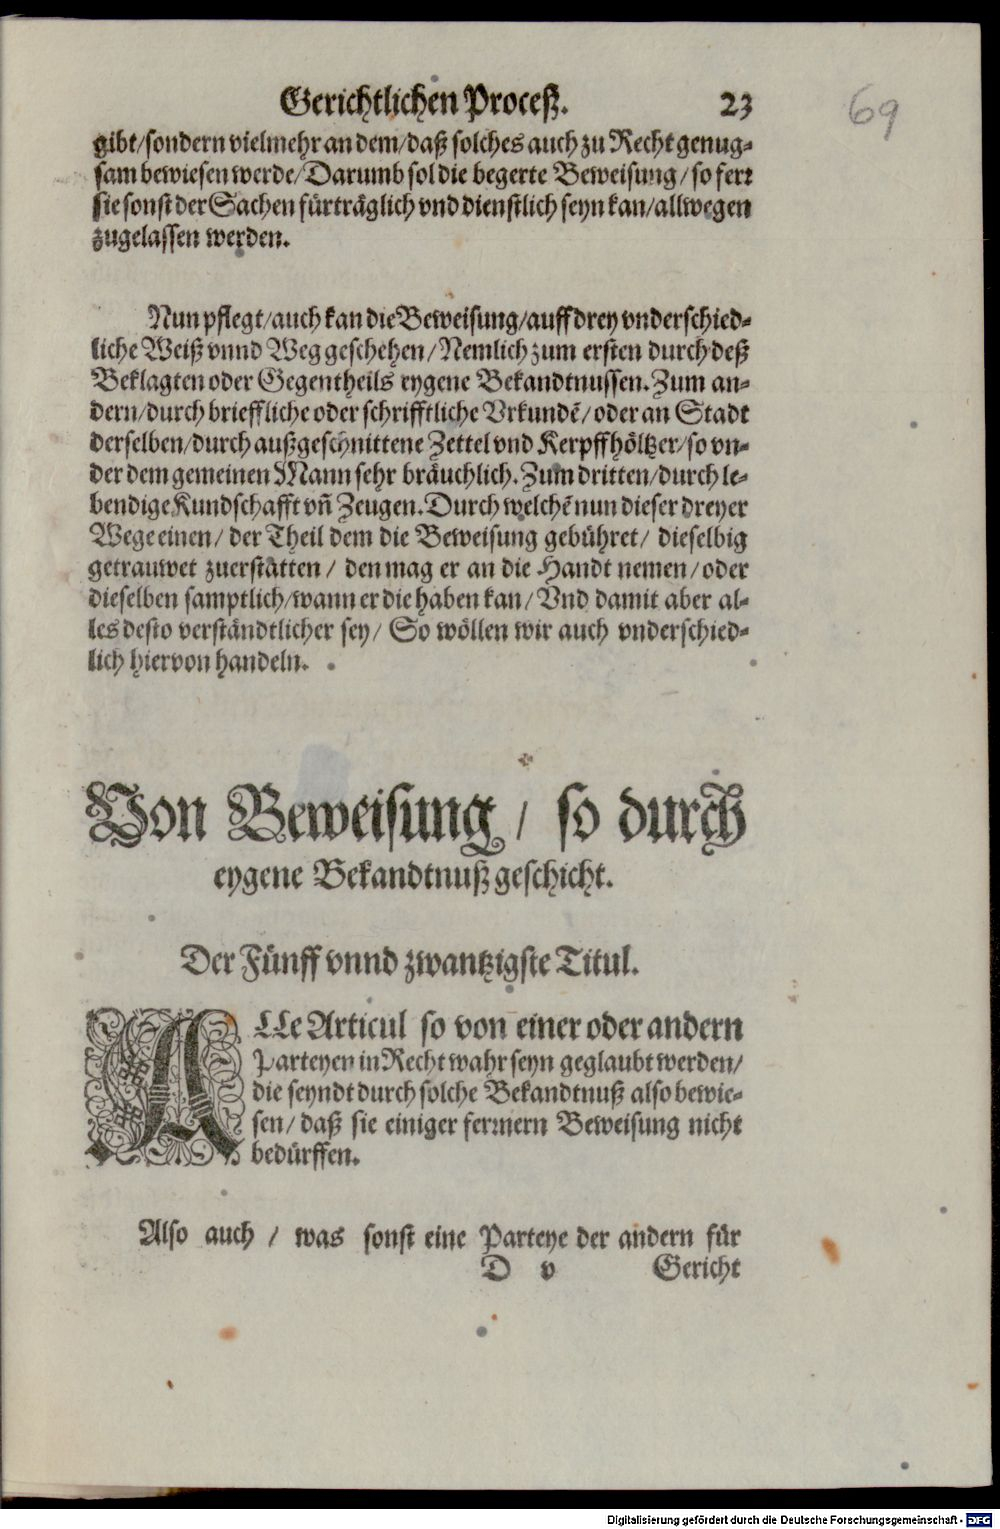 Gerichtlichen Proceß. 23
69
gibt/sondern vielmehr an dem/daß solches auch zu Recht genug-
sam bewiesen werde/Darumb sol die begerte Beweisung/so ferr
sie sonst der Sachen fürträglich vnd dienstlich seyn kan/allwegen
zugelassen werden.
Nun pflegt/auch kan die Beweisung/auff drey vnderschied-
liche Weiß vnnd Weg geschehen/Nemlich zum ersten durch deß
Beklagten oder Gegentheils eygene Bekandtnussen. Zum an-
dern/durch brieffliche oder schrifftliche Vrkundē/oder an Stadt
derselben/durch außgeschnittene Zettel vnd Kerpffhöltzer/so vn-
der dem gemeinen Mann sehr bräuchlich. Zum dritten/durch le-
bendige Kundschafft vñ Zeugen. Durch welchē nun dieser dreyer
Wege einen/ der Theil dem die Beweisung gebühret/ dieselbig
getrauwet zuerstatten/ den mag er an die Handt nemen/oder
dieselben samptlich/wann er die haben kan/ Vnd damit aber al-
les desto verständtlicher sey/ So wöllen wir auch vnderschied-
lich hiervon handeln.
Von Beweisung/ so durch
eygene Bekandtnuß geschicht.
Der Fünff vnnd zwantzigste Titul.
ALLe Articul so von einer oder andern
Parteyen in Recht wahr seyn geglaubt werden/
die seyndt durch solche Bekandtnuß also bewie-
sen/ daß sie einiger fernern Beweisung nicht
bedürffen.
Also auch / was sonst eine Parteye der andern für
D v Gericht
Digitalisierung gefördert durch die Deutsche Forschungsgemeinschaft - DFG